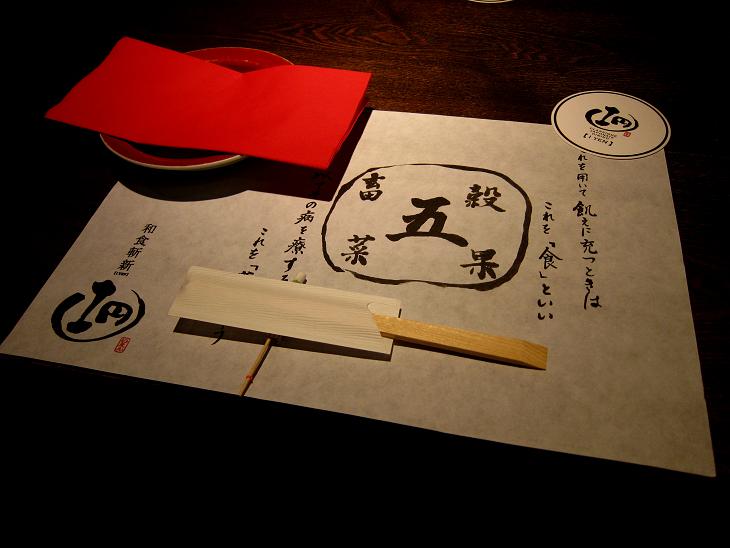 これを用いて 飢えに充つときは
これを「食」といい
穀
果
五
畜
菜
の病を療する
これを「
和食新新
I YEN
[I YEN]